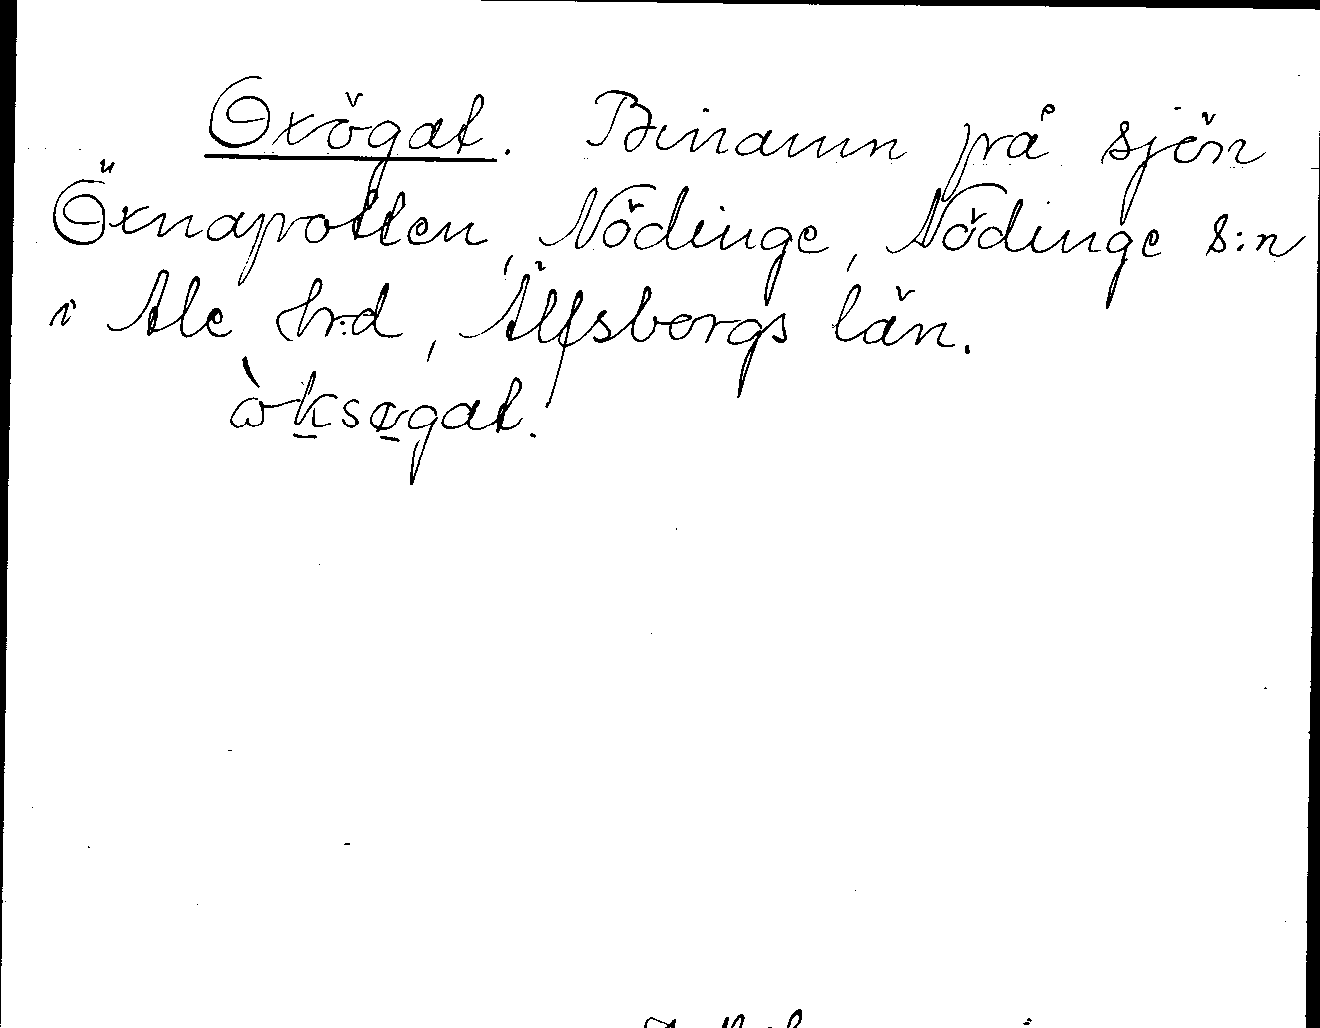 Oxögat. Binamn på sjön
Öxnapotten, Nödinge, Nödinge s:n
i Ale h:d, Älfsborgs län.